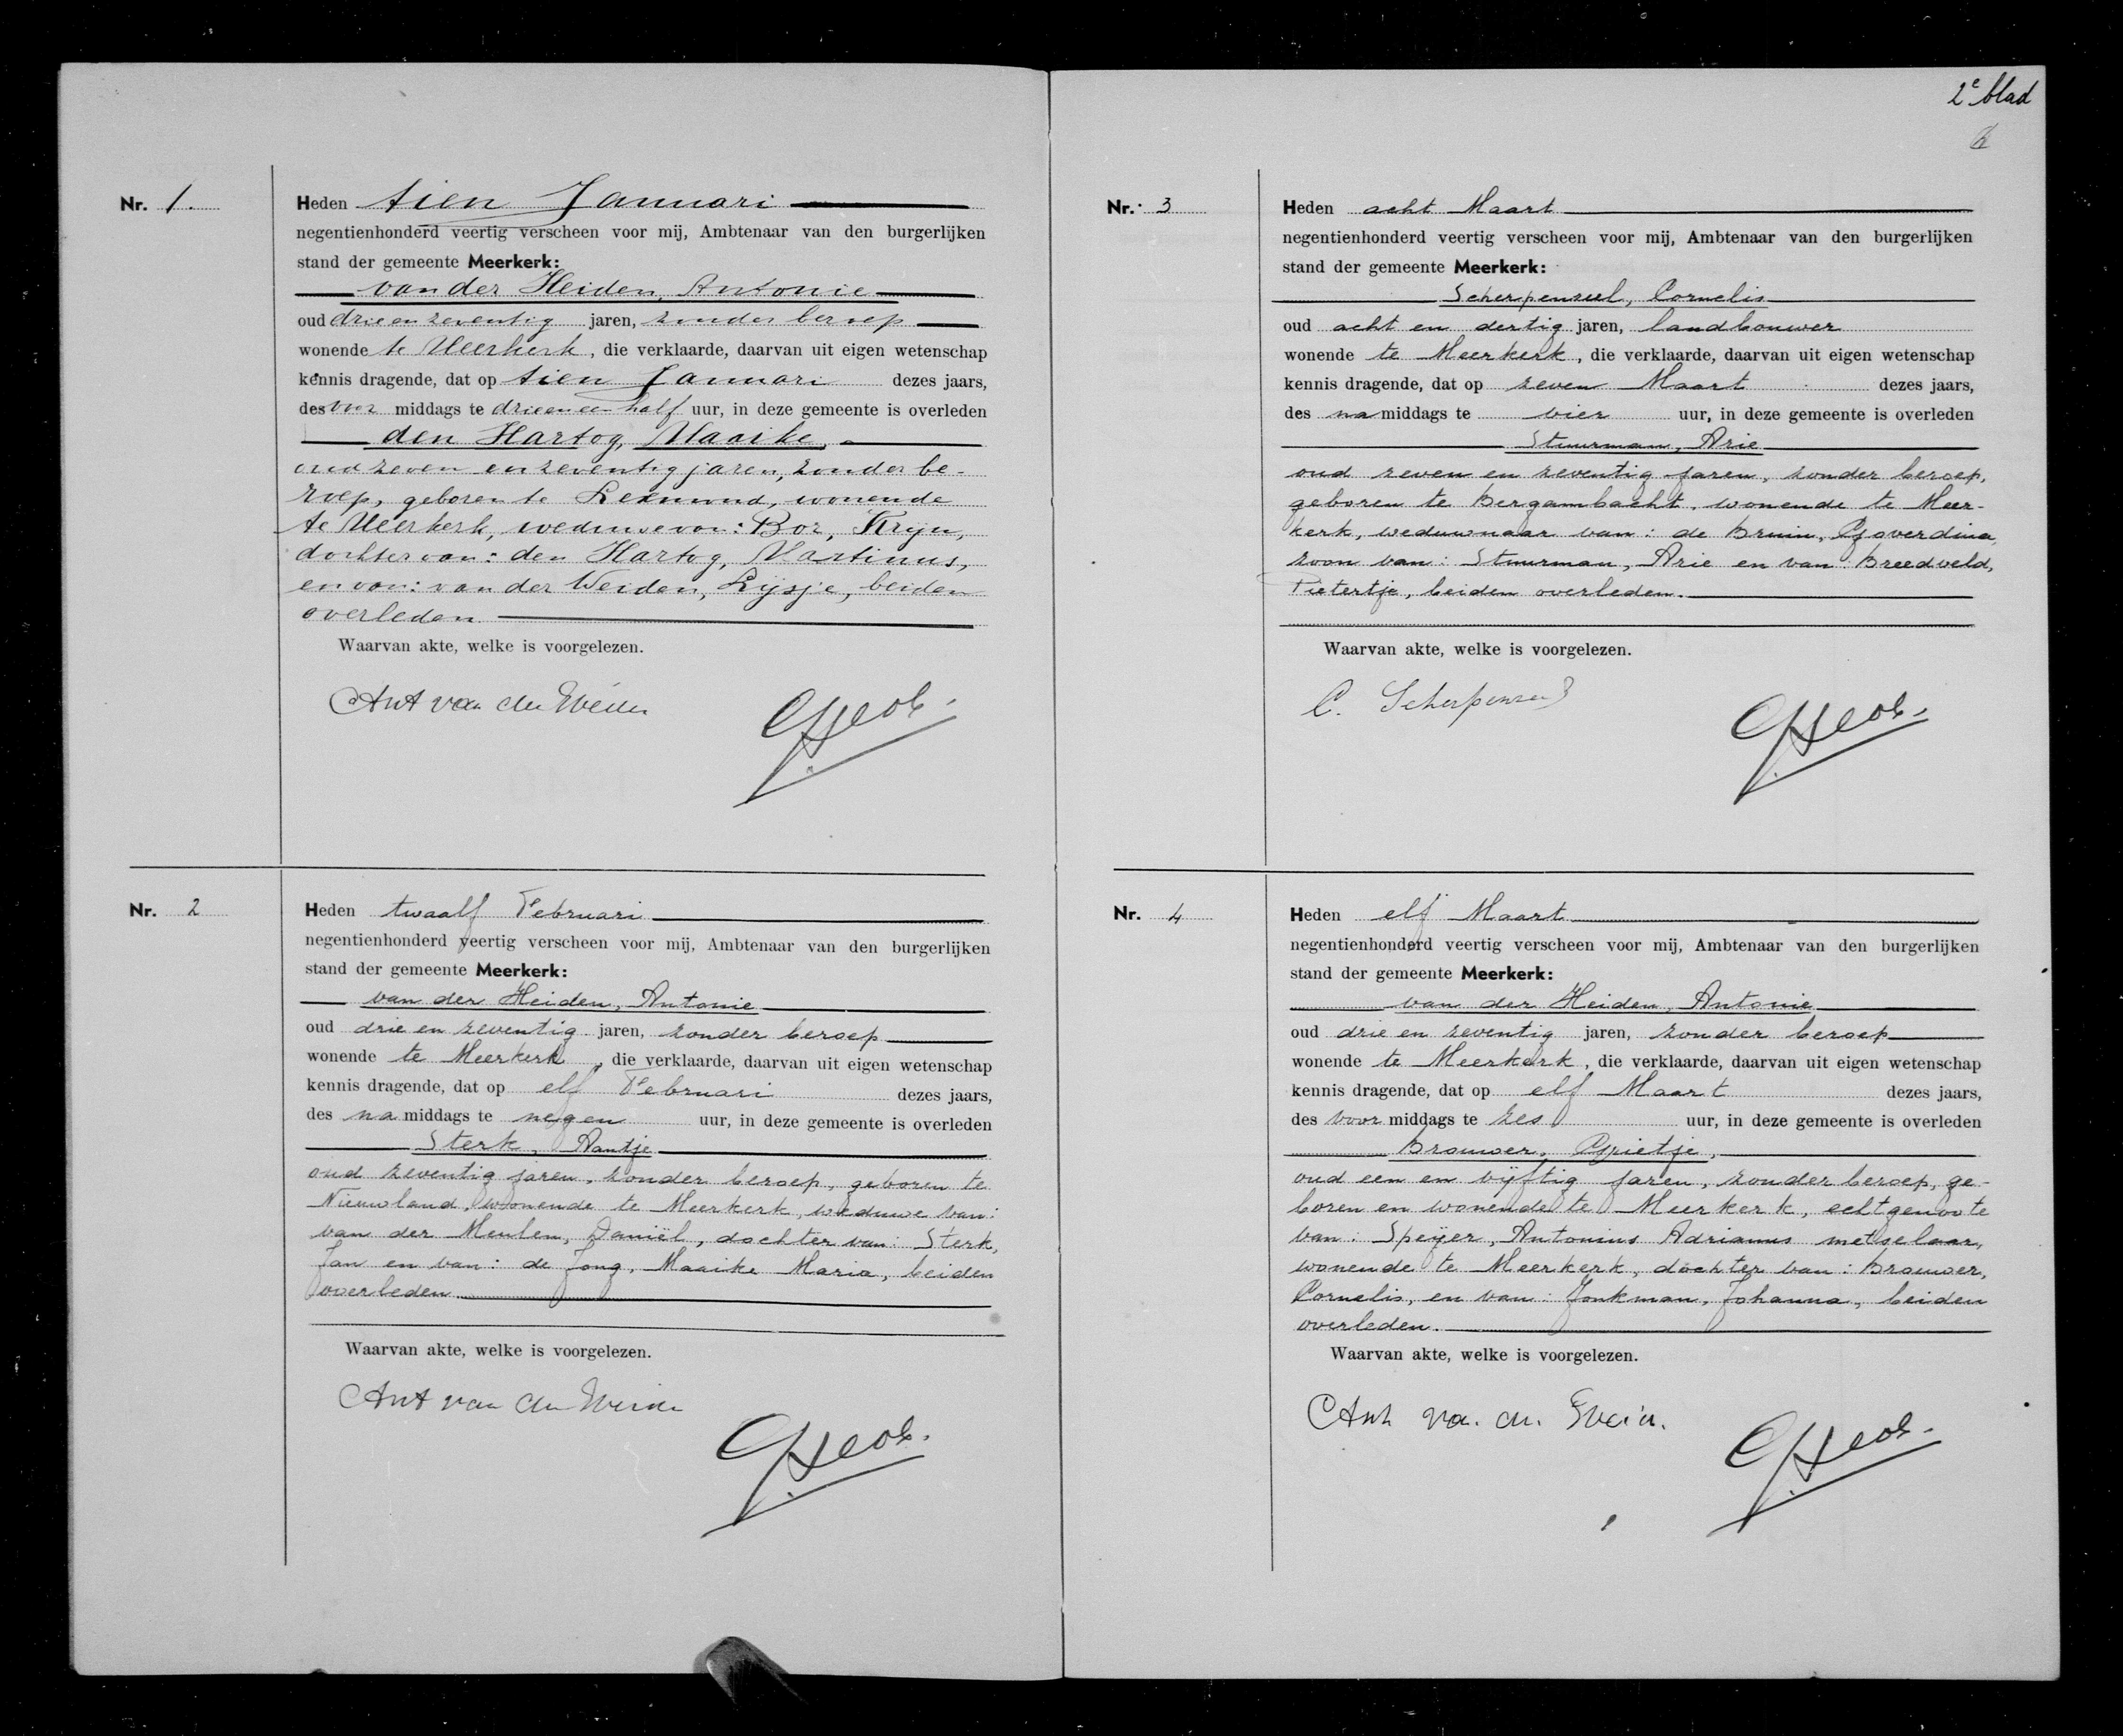 Nr. 1.
Heden tien Januari
negentienhonderd veertig verscheen voor mij, Ambtenaar van den burgerlijken
stand der gemeente Meerkerk:
van der Heiden, Antonie
oud drie en zeventig jaren, zonder beroep
wonende te Meerkerk, die verklaarde, daarvan uit eigen wetenschap
kennis dragende, dat op tien Januari dezes jaars,
des voor middags te drie en een half uur, in deze gemeente is overleden
den Hartog, Maaike,
oud zeven en zeventig jaren, zonder be-
roep, geboren te Lexmond, wonende
te Meerkerk, weduwe van: Bor, Krijn,
dochter van: den Hartog, Martinus,
en van: van der Weiden, Lijsje, beiden
overleden.
Waarvan akte, welke is voorgelezen.
Ant van der Heiden
Nr. 2
Heden twaalf Februari
negentienhonderd veertig verscheen voor mij, Ambtenaar van den burgerlijken
stand der gemeente Meerkerk:
van der Heiden, Antonie
oud drie en zeventig jaren, zonder beroep
wonende te Meerkerk, die verklaarde, daarvan uit eigen wetenschap
kennis dragende, dat op elf Februari dezes jaars,
des na middags te negen uur, in deze gemeente is overleden
Sterk, Aantje
oud zeventig jaren, zonder beroep, geboren te
Nieuwland, wonende te Meerkerk, weduwe van:
van der Meulen, Daniël, dochter van: Sterk,
Jan en van: de Jong, Maaike Maria, beiden
overleden
Waarvan akte, welke is voorgelezen.
Ant van der Heiden
2e blad
2
Nr. 3
Heden acht Maart
negentienhonderd veertig verscheen voor mij, Ambtenaar van den burgerlijken
stand der gemeente Meerkerk:
Scherpenzeel, Cornelis
oud acht en dertig jaren, landbouwer
wonende te Meerkerk, die verklaarde, daarvan uit eigen wetenschap
kennis dragende, dat op zeven Maart dezes jaars,
des na middags te vier uur, in deze gemeente is overleden
Stuurman, Arie
oud zeven en zeventig jaren, zonder beroep,
geboren te Bergambacht, wonende te Meer-
kerk, weduwnaar van: de Bruin, Goverdina,
zoon van: Stuurman, Arie en van: Breedveld,
Pietertje, beiden overleden.
Waarvan akte, welke is voorgelezen.
C. Scherpenzeel
Nr. 4
Heden elf Maart
negentienhonderd veertig verscheen voor mij, Ambtenaar van den burgerlijken
stand der gemeente Meerkerk:
van der Heiden, Antonie
oud drie en zeventig jaren, zonder beroep
wonende te Meerkerk, die verklaarde, daarvan uit eigen wetenschap
kennis dragende, dat op elf Maart dezes jaars,
des voor middags te zes uur, in deze gemeente is overleden
Brouwer, Grietje,
oud een en vijftig jaren, zonder beroep, ge-
boren en wonende te Meerkerk, echtgenoote
van: Speijer, Antonius Adrianus metselaar,
wonende te Meerkerk, dochter van: Brouwer,
Cornelis, en van: Jonkman, Johanna, beiden
overleden.
Waarvan akte, welke is voorgelezen.